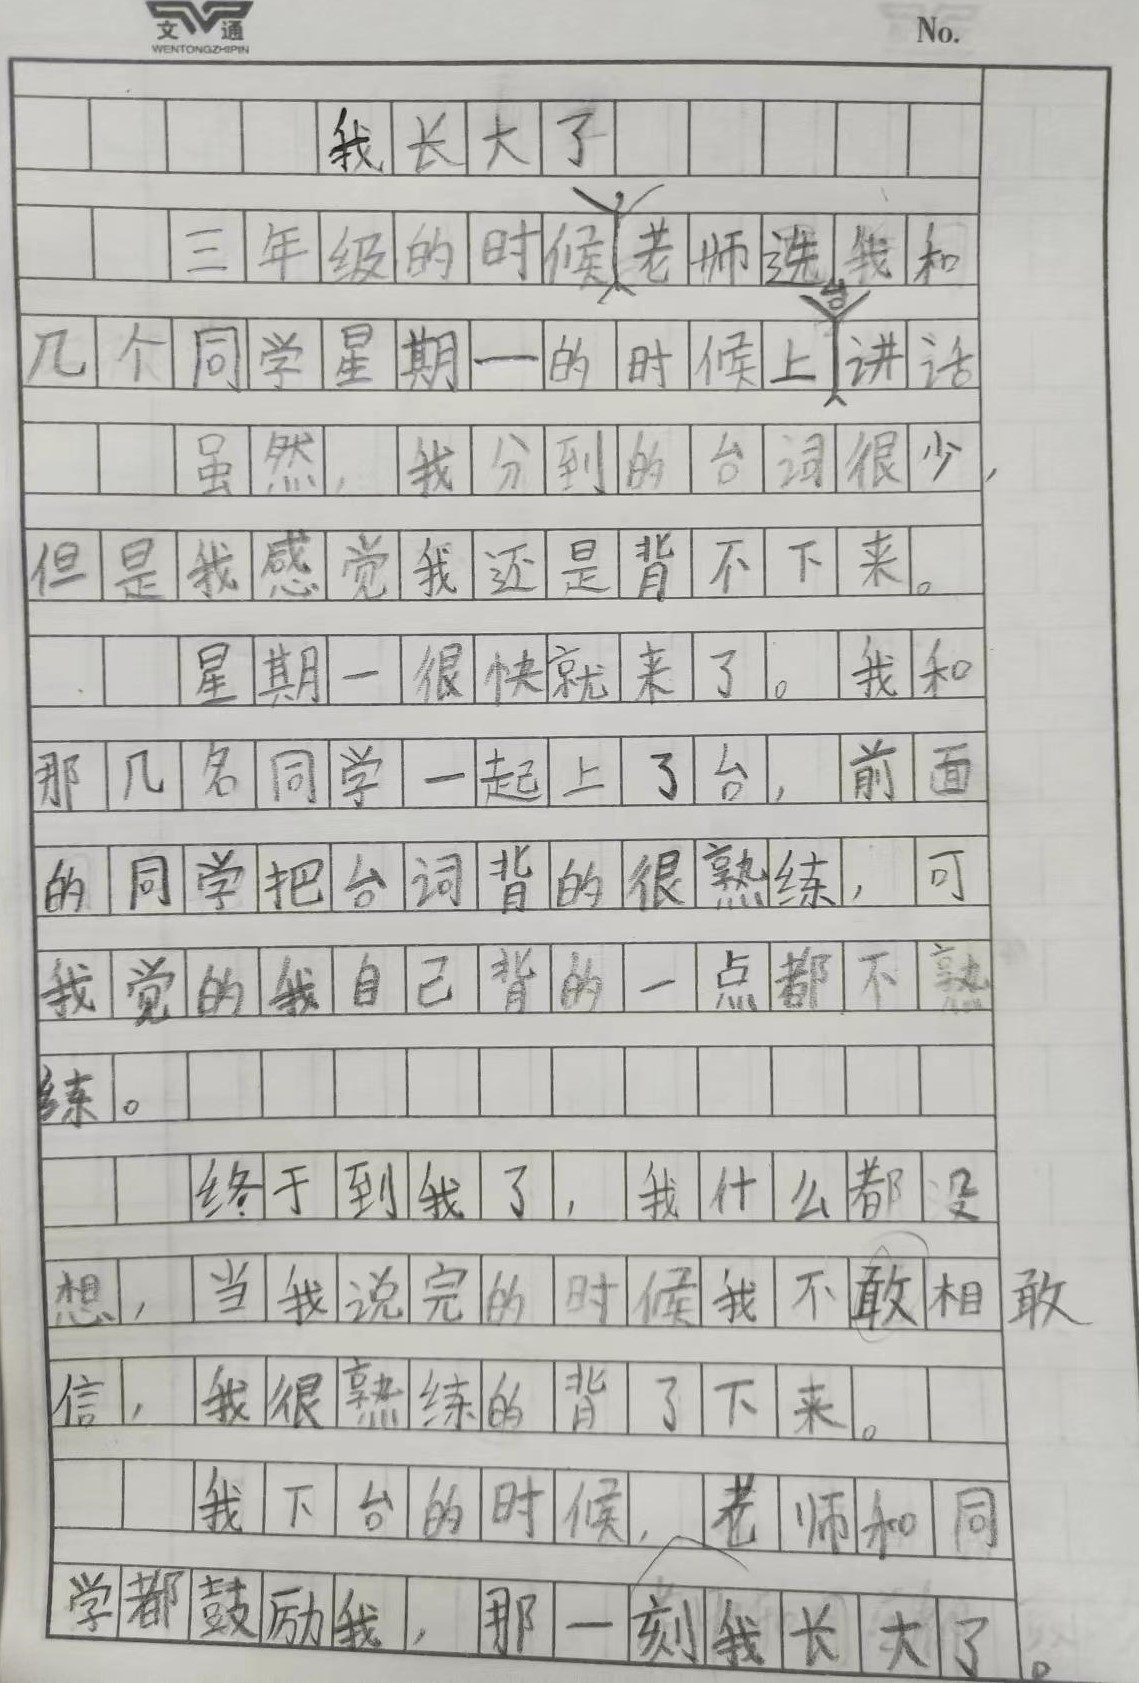 文通
WENTONGZHIPIN
No.
我长大了
三年级的时候,老师选我和
几个同学星期一的时候上台讲话
虽然,我分到的台词很少,
但是我感觉我还是背不下来。
星期一很快就来了。我和
那几名同学一起上了台,前面
的同学把台词背的很熟练,可
我觉的我自己背的一点都不熟
练。
终于到我了,我什么都没
想,当我说完的时候我不敢相 敢
信,我很熟练的背了下来。
我下台的时候,老师和同
学都鼓励我,那一刻我长大了。